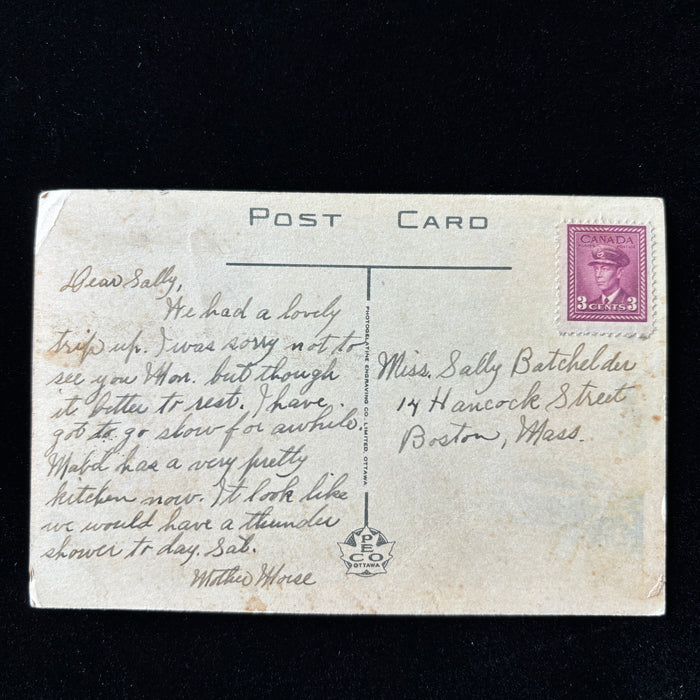 POST CARD
CANADA
POSTES POSTAGE
3 CENTS 3
Dear Sally,
We had a lovely
trip up. I was sorry not to
see you Mon. but though
it better to rest. I have
got to go slow for awhile.
Mabel has a very pretty
kitchen now. It look like
we would have a thunder
shower to day. Sat.
Mother Morse
PHOTOGELATINE ENGRAVING CO. LIMITED, OTTAWA.
Miss. Sally Batchelder
14 Hancock Street
Boston, Mass.
PECO
OTTAWA